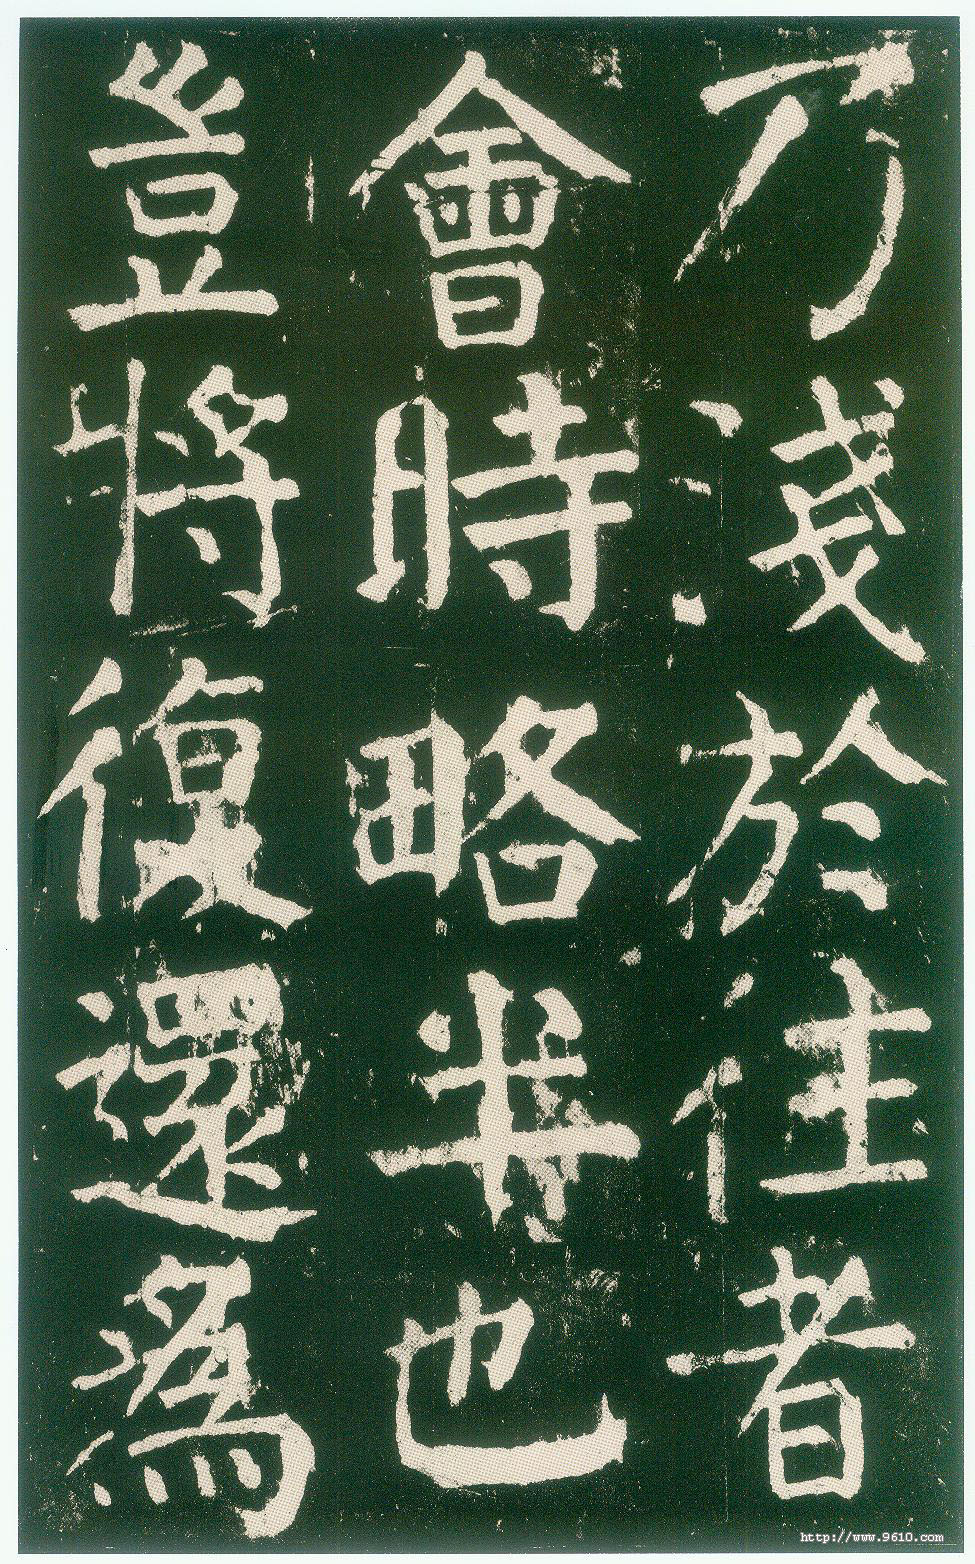 乃淺於往者
會時略半也
豈將復還為
http://www.9610.com